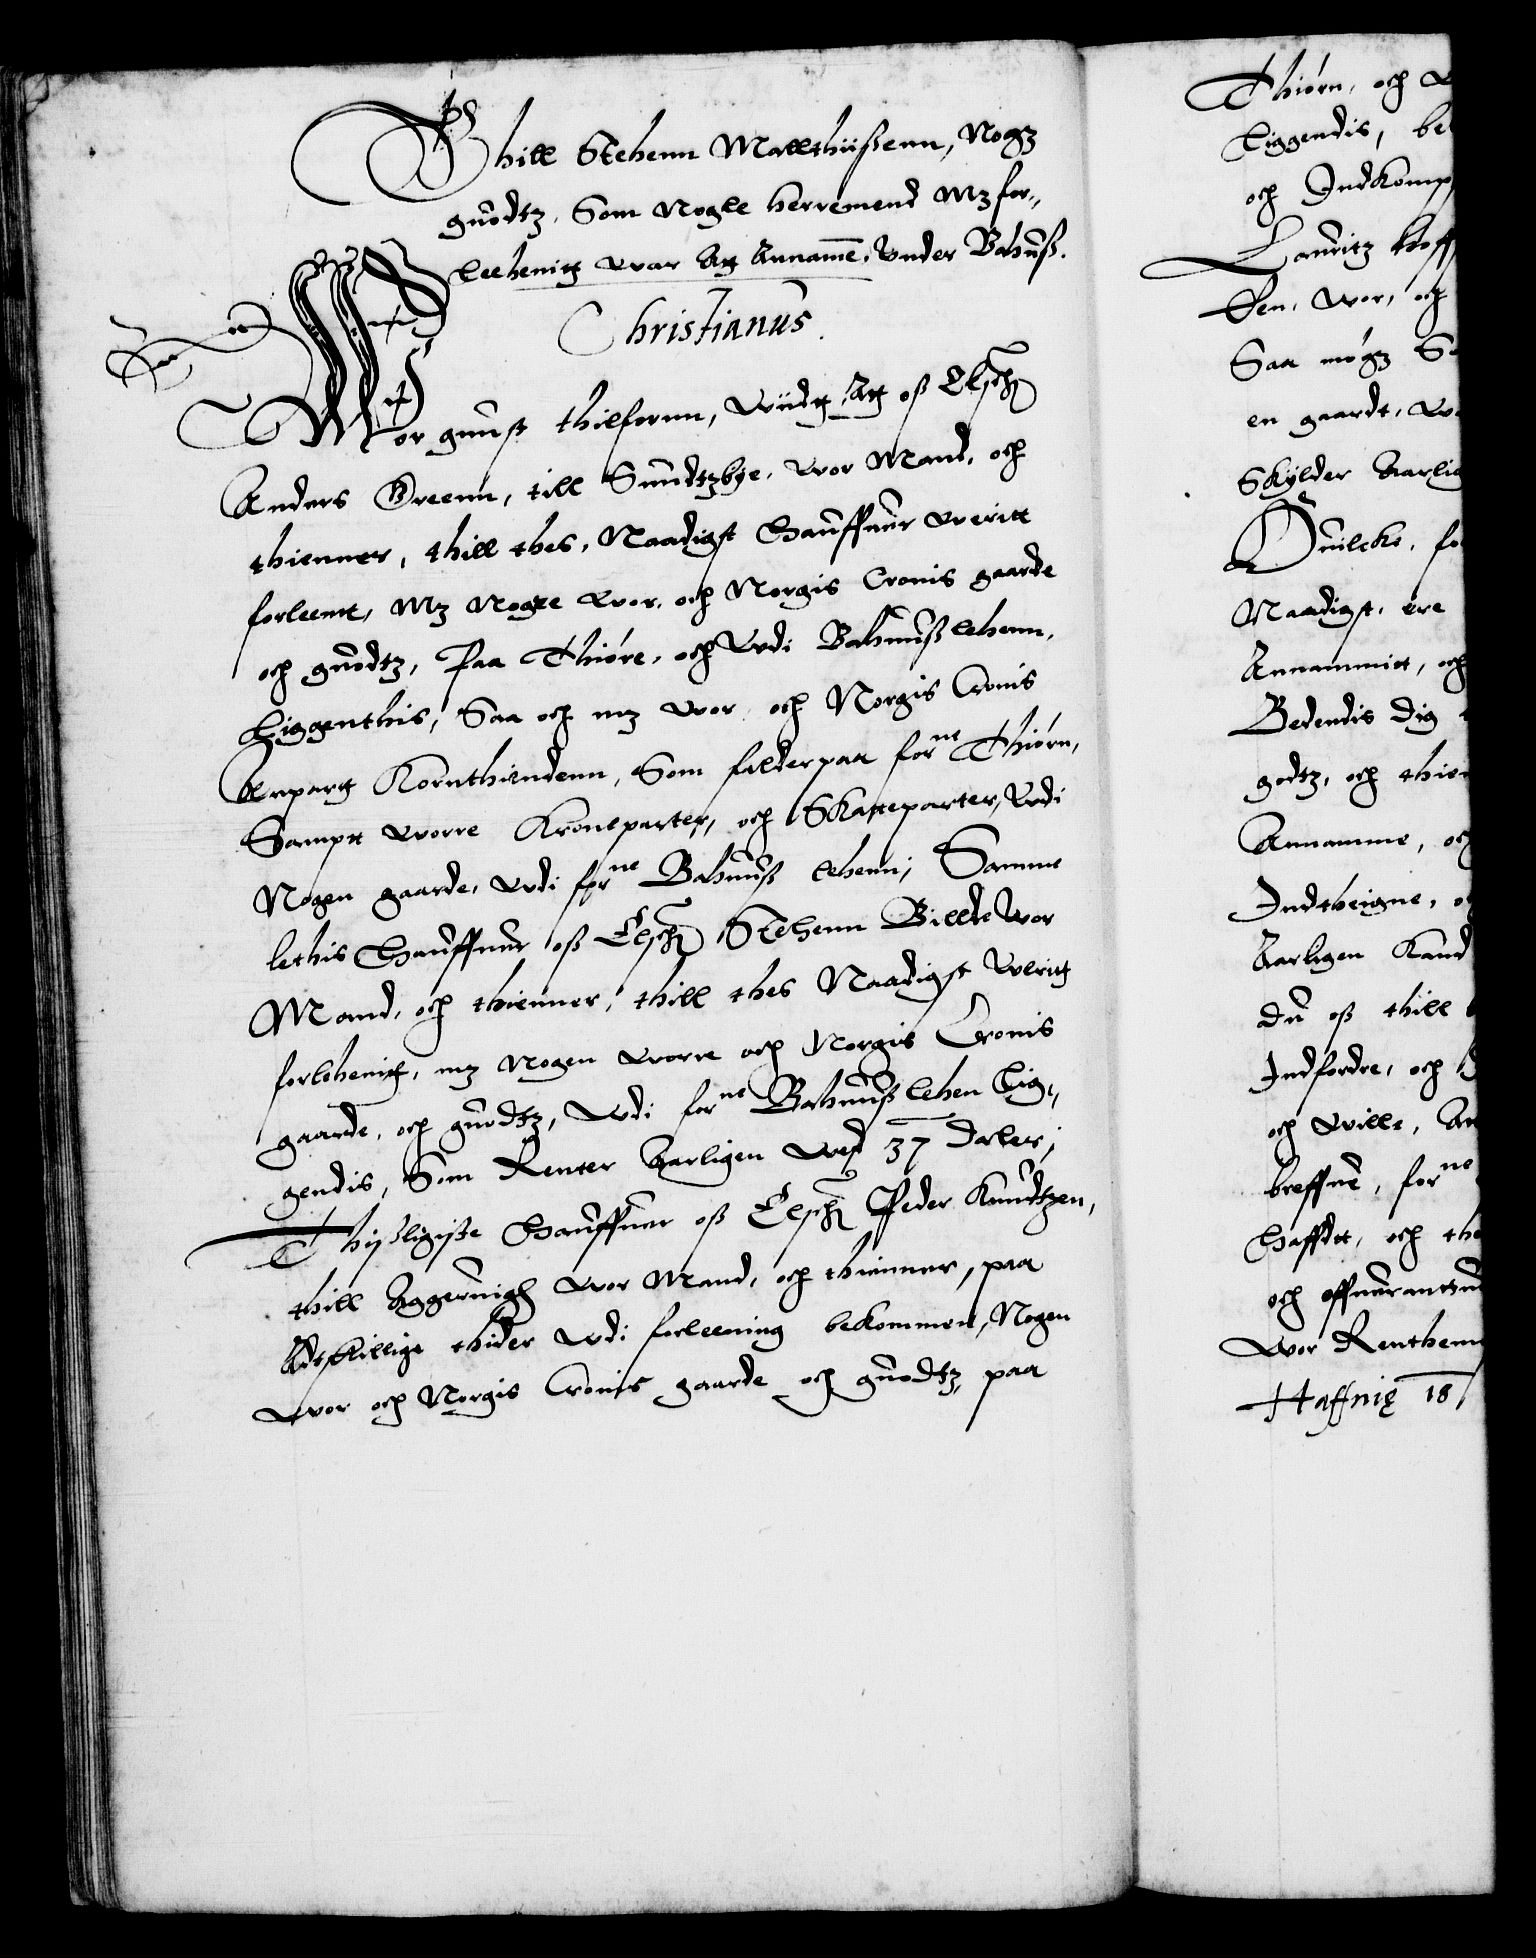 Thill Stehenn Mallthiißenn, Nogz
guodtz, Som Nogle herremend Mz for,,
leehenitt wax Att Annamē, Under Bahuß.
Christianus.
Wor gunst thilfornn, Wiidtt Att oß Elsche
Anders Greenn, till Sundtzbye, wor Mand, och
thienner, thill thes, Naadigst Haffuer Weritt
forleent, Mz Nogre wor, och Norgis Cronis gaarde
och guodtz, Paa Thiøre, och Wdi Bahuußlehenn,
Liggenthis, Saa och mz wor och Norgis Cronis
Anpartt Kornthiendenn, Som falder paa forne Thiørn,
Sampt worre Kroneparter, och Skatteparter, Wdi
Nogen gaarde, Wdi forne Bahuuß lehenn, Samme
lethis Haffuer oß Elsche Stehenn Billde Wor
Mand, och thienner, thill thes Naadigst Weritt
forlehenitt, mz Nogen worre och Norgis Cronis
gaarde, och guodtz, Wdi forne Bahuuß lehen Lig,,
gendis, Som Renter Aarligen wed 37 daler,
Thißligiste Haffuer oß Elsche Peder Knudtzen,
thill Aggeruigh wor Mand, och thienner, paa
Adtskillige thider Wdi forleening bekommen, Nogen
Wor och Norgis Cronis gaarde och guodtz, paa
Thiørn, och
Liggendis,
och Indkomp
Lauritz
Pen, wor, och
Saa møgz
en gaardt,
Skylder Aarlig
Huilcke,
Naadigst, ere
Annammitt, och
Bedendis dig
godtz, och thien
Annamme, och
Indtheigne,
Aarligen Kand
du oß thill
Indfordre, och
och wille,
breffue, forne
Hafft, och the
och offuerantu
Wor Renthem
Haffnię 18